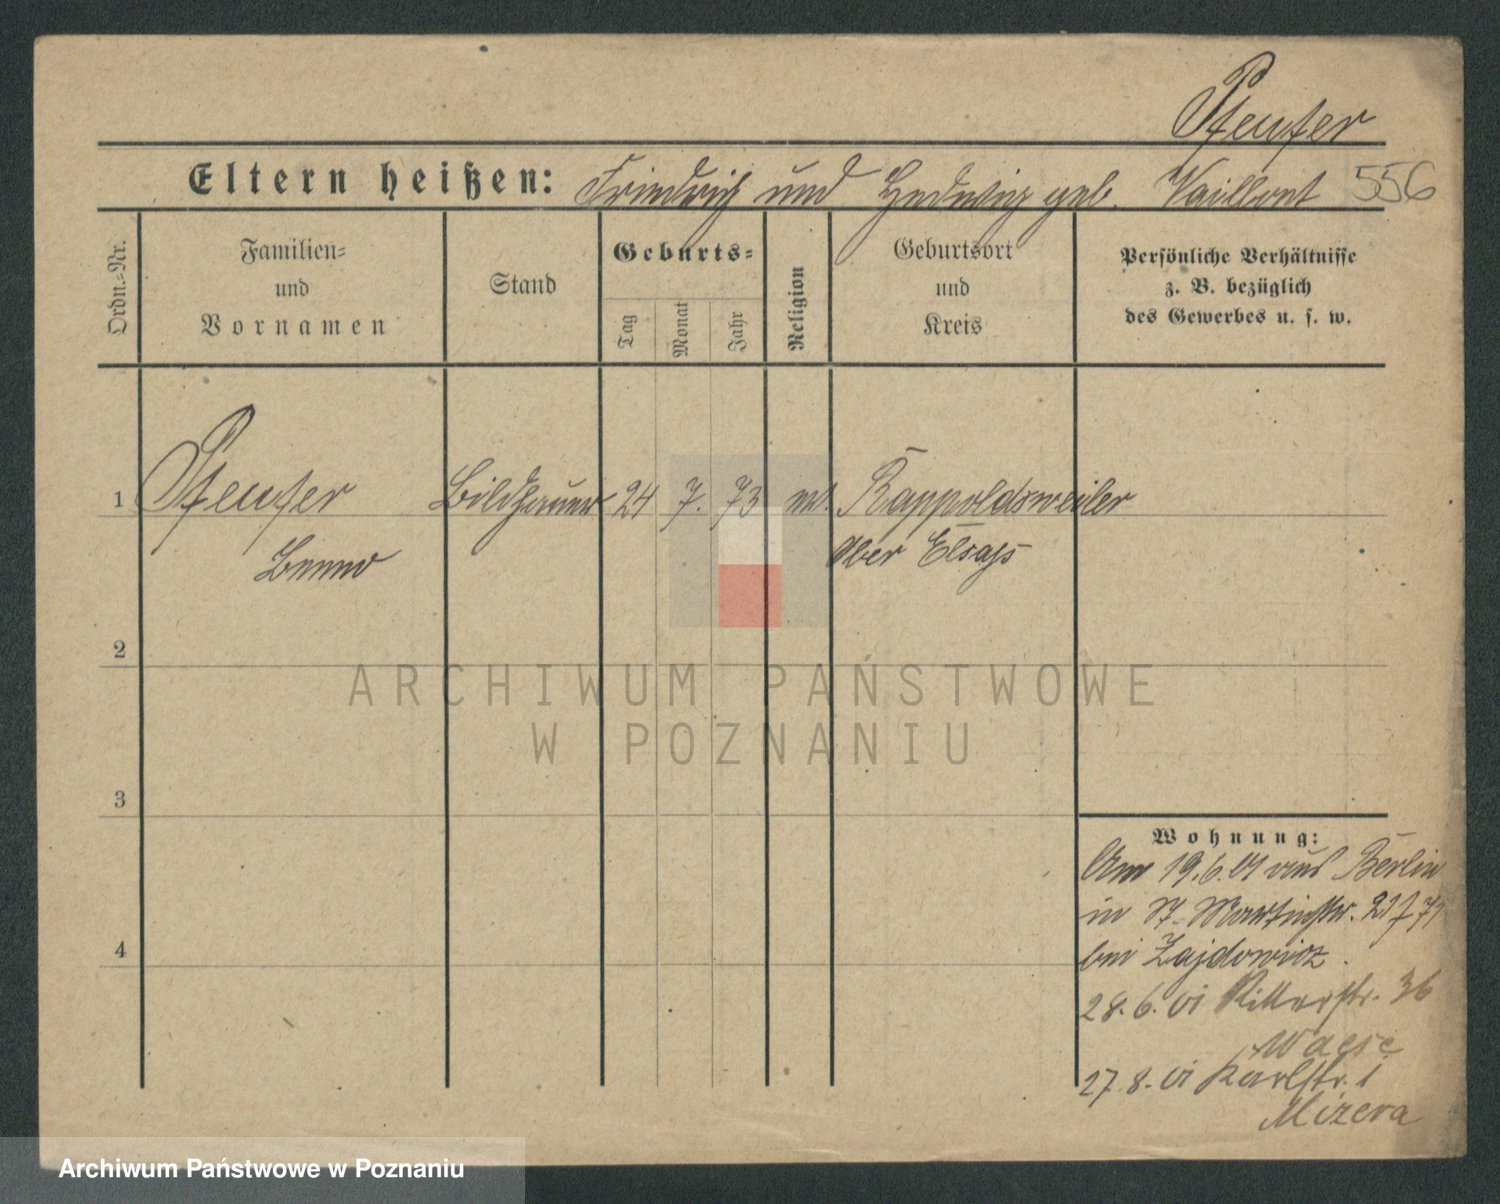 Pfeufer
Eltern heißen: Friedrich und Hedwig geb. Vaillant 556
Ordn.-Nr.
Familien- und Vornamen
Stand
Geburts-
Tag Monat Jahr
Religion
Geburtsort und Kreis
Persönliche Verhältnisse
z. B. bezüglich
des Gewerbes u. s. w.
1 Pfeufer Bildhauer 24 7. 73 Rappoldsweiler
Benno Ober Elsaß
2
ARCHIWUM PAŃSTWOWE
W POZNANIU
3
4
Wohnung:
Am 19.6.01 aus Berlin
in St. Martinstr.
bei Zajdowicz.
28.6.01 Ritterstr. 36
27.8.01 Karlstr. 1
Mizera
Archiwum Państwowe w Poznaniu